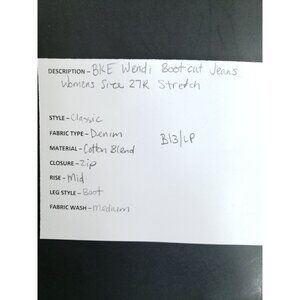 DESCRIPTION - BKE Wendi Bootcut Jeans
Womens Size 27R Stretch
STYLE - Classic
FABRIC TYPE - Denim
B13/LP
MATERIAL - Cotton Blend
CLOSURE - Zip
RISE - Mid
LEG STYLE - Boot
FABRIC WASH - Medium